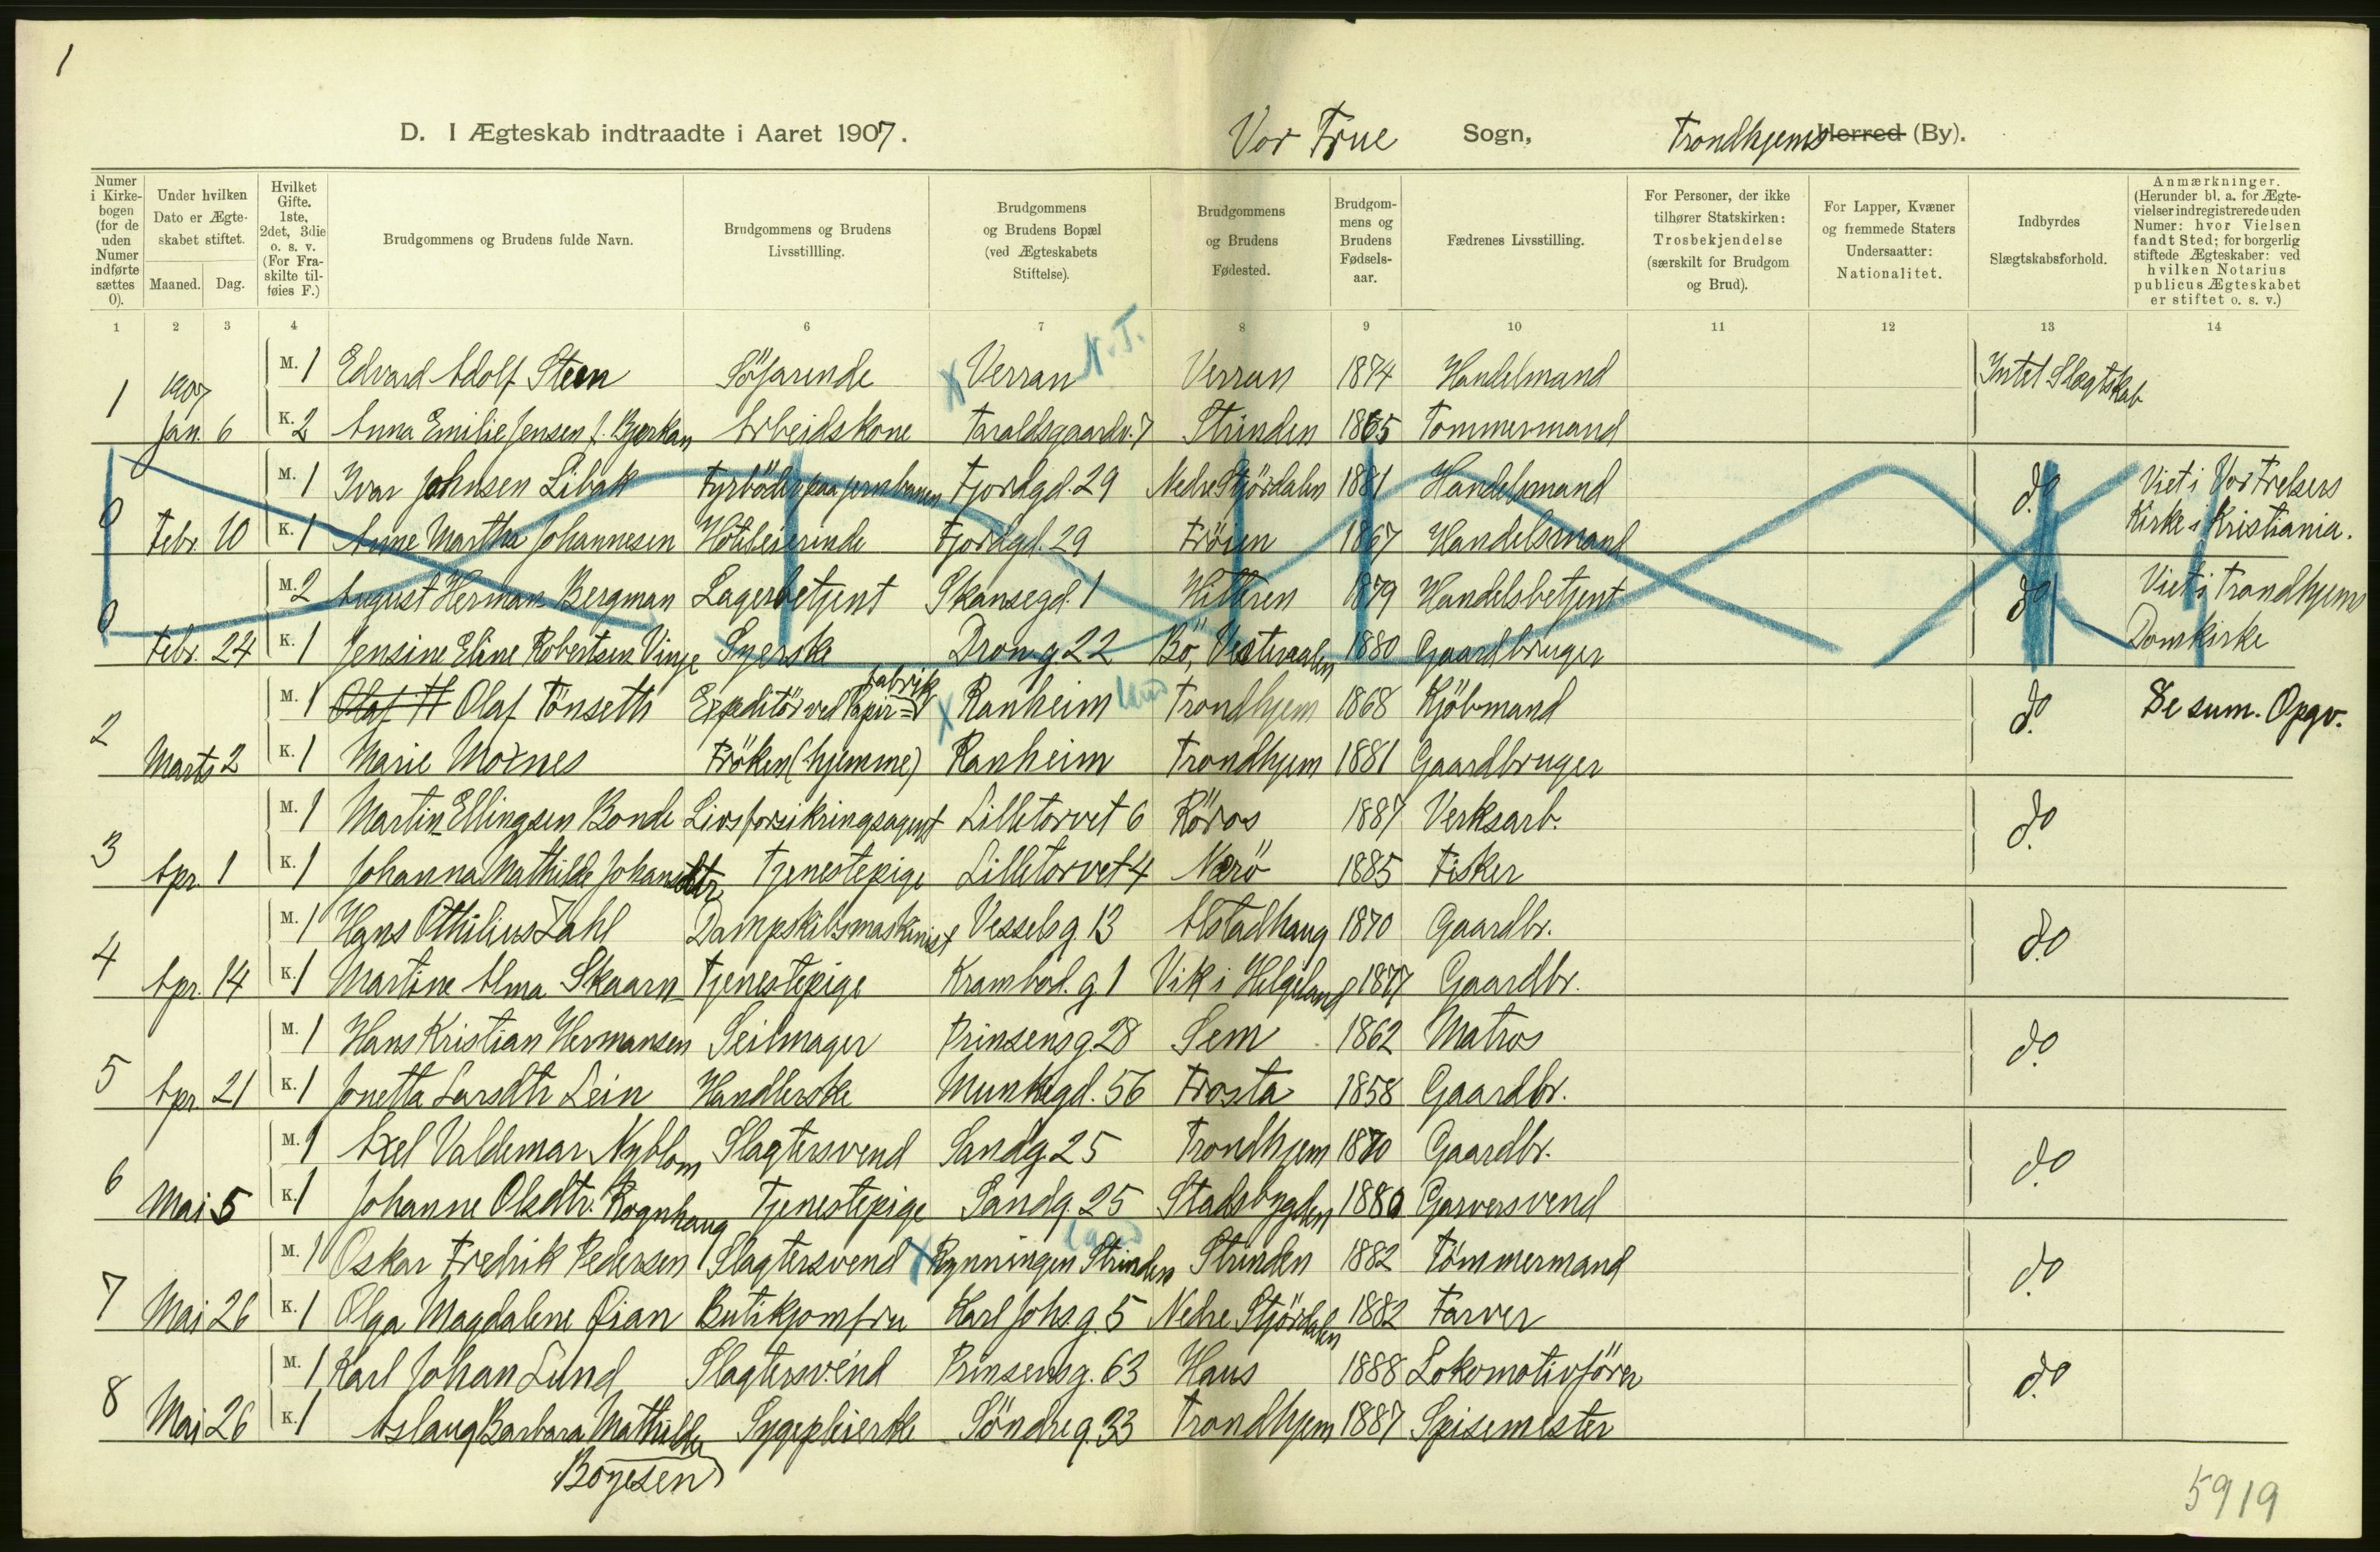 1
D. I Ægteskab indtraadte i Aaret 1907.
Vor Frue Sogn, Trondhjems Herred (By).
Numer i Kirkebogen (for de uden Numer indførte sættes 0).
Under hvilken Dato er Ægteskabet stiftet.
Maaned. Dag.
Hvilket Gifte. 1ste, 2det, 3die o. s. v. (For Fraskilte tilføies F.)
Brudgommens og Brudens fulde Navn.
Brudgommens og Brudens Livsstillling.
Brudgommens og Brudens Bopæl (ved Ægteskabets Stiftelse).
Brudgommens og Brudens Fødested.
Brudgommens og Brudens Fødselsaar.
Fædrenes Livsstilling.
For Personer, der ikke tilhører Statskirken: Trosbekjendelse (særskilt for Brudgom og Brud).
For Lapper, Kvæner og fremmede Staters Undersaatter: Nationalitet.
Indbyrdes Slægtskabsforhold.
Anmærkninger. (Herunder bl. a. for Ægtevielser indregistrerede uden Numer: hvor Vielsen fandt Sted; for borgerlig stiftede Ægteskaber: ved hvilken Notarius publicus Ægteskabet er stiftet o. s. v.)
1 2 3 4 6 7 8 9 10 11 12 13 14
M. 1 Edvard Adolf Steen Söfarende X Verran N.T. Verran 1874 Handelmand Intet Slægtskab
1 1907 Jan. 6 K. 2 Anna Emilie Jensen f. Bjerkan Arbeidskone Taraldsgaardv. 7 Strinden 1865 Tømmermand
M. 1 Ivar Johnsen Libak Fyrböder paa jernbanen Fjordgd. 29 Nedre Stjördalen 1881 Handelsmand do Viet i Vor Frelsers
0 Febr. 10 K. 1 Anne Martha Johannesen Hoteleierinde Fjordgd. 29 Fröien 1867 Handelsmand Kirke i Kristiania.
M. 2 August Herman Bergman Lagerbetjent Skansegd. 1 Hitteren 1879 Handelsbetjent do Viet i Trondhjems
0 Febr. 24 K. 1 Jensine Eline Robertsen Vinje Syerske Dron.g. 22 Bö, Vesteraalen 1880 Gaardbruger Domkirke
M. 1 Olaf H Olaf Tönseth Expeditör ved Papir=fabrik X Ranheim land Trondhjem 1868 Kjöbmand do Se sum. Opgv.
2 Marts 2 K. 1 Marie Moxnes Fröken (hjemme) Ranheim Trondhjem 1881 Gaardbruger
M. 1 Martin Ellingsen Bonde Livsforsikringsagent Lilletorvet 6 Röros 1887 Verksarb. do
3 Apr. 1 K. 1 Johanna Mathilde Johansdtr Tjenestepige Lilletorvet 4 Nærö 1885 Fisker
M. 1 Hans Othilius Zahl Dampskibsmaskinist Vesselsg. 13 Alstadhaug 1870 Gaardbr. do
4 Apr. 14 K. 1 Martine Alma Skaarn Tjenestepige Krambod.g. 1 Vik i Helgeland 1877 Gaardbr.
M. 1 Hans Kristian Hermansen Seilmager Prinsensg. 28 Sem 1862 Matros do
5 Apr. 21 K. 1 Jonetta Larsdtr Lein Handlerske Munkegd. 56 Frosta 1858 Gaardbr.
M. 1 Axel Valdemar Nyblom Slagtersvend Sandg. 25 Trondhjem 1870 Gaardbr. do
6 Mai 5 K. 1 Johanne Olsdtr. Rognhaug Tjenestepige Sandg. 25 Stadsbygden 1880 Garversvend
M. 1 Oskar Fredrik Pedersen Slagtersvend X Rynningen Strinden land Strinden 1882 Tömmermand do
7 Mai 26 K. 1 Olga Magdalene Øian Butikjomfru Karl Johs.g. 5 Nedre Stjördalen 1882 Farver
M. 1 Karl Johan Lund Slagtersvend Prinsensg. 63 Haus 1888 Lokomotivförer do
8 Mai 26 K. 1 Aslaug Barbara Mathilde Sygepleierske Söndreg. 33 Trondhjem 1887 Spisemester
Boyesen
5919